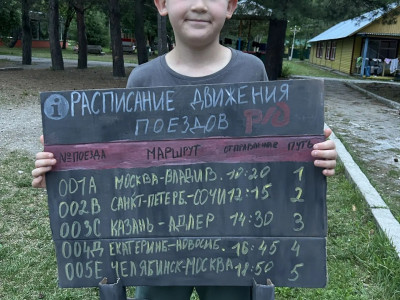 i РАСПИСАНИЕ ДВИЖЕНИЯ
ПОЕЗДОВ РЖД
№ПОЕЗДА МАРШРУТ ОТПРАВЛЕНИЕ ПУТЬ
001А МОСКВА-ВЛАДИВ. 10:20 1
002В САНКТ-ПЕТЕРБ-СОЧИ 12:15 2
003С КАЗАНЬ-АДЛЕР 14:30 3
004Д ЕКАТЕРИНБ-НОВОСИБ. 16:45 4
005Е ЧЕЛЯБИНСК-МОСКВА 18:50 5